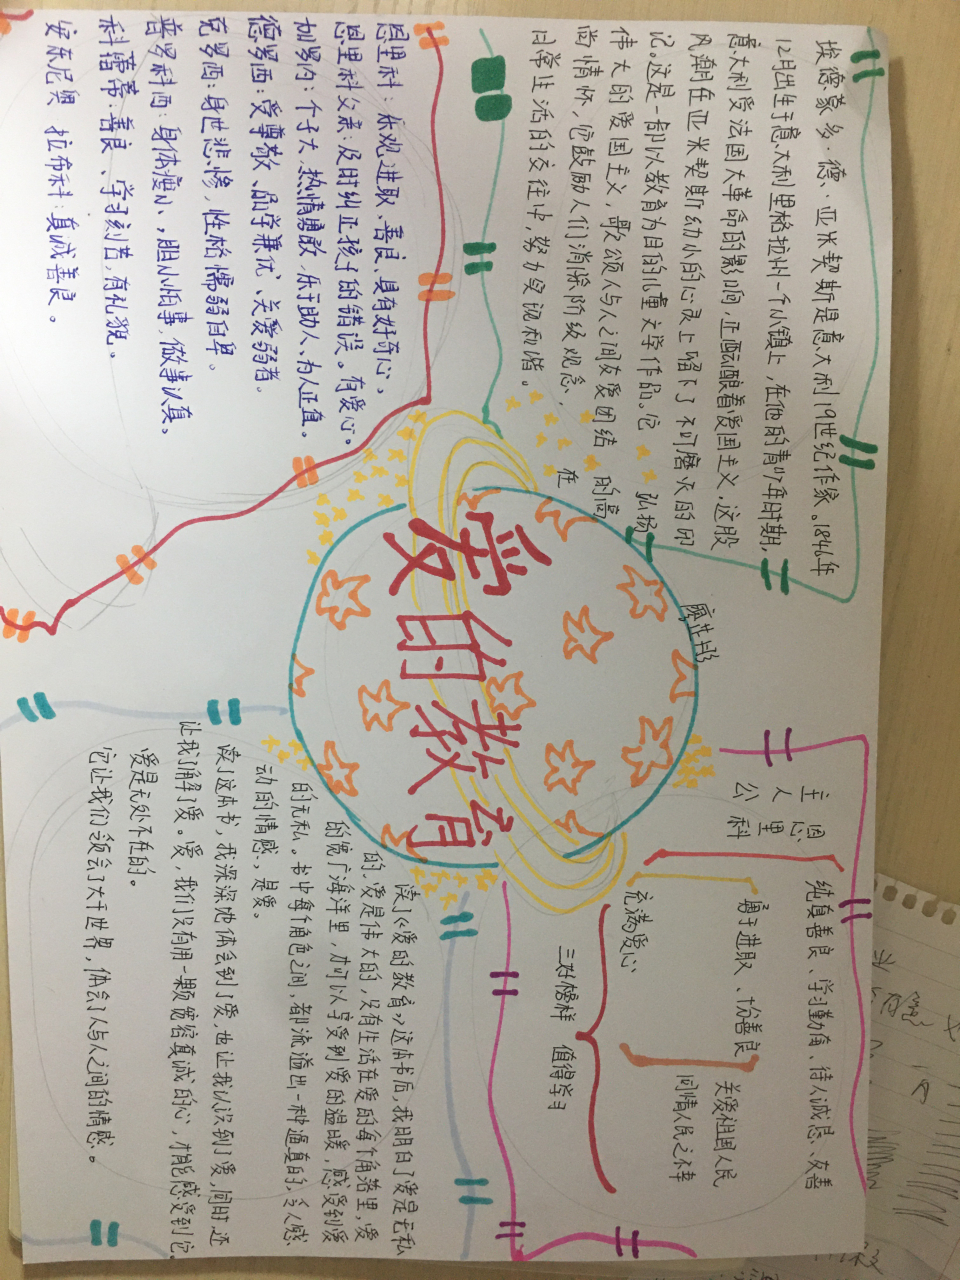 爱的教育
埃德蒙多·德·亚米契斯是意大利19世纪作家。1846年
12月出生于意大利里格拉州一个小镇上,在他的青少年时期,
意大利受法国大革命的影响,正酝酿着爱国主义,这股
风潮在亚米契斯幼小的心灵上留下了不可磨灭的印
记。这是一部以教育为目的的儿童文学作品。它 弘扬
伟大的爱国主义,歌颂人与人之间友爱团结 的高
尚情怀,它鼓励人们消除阶级观念, 在
日常生活的交往中,努力实现和谐。
主人公
恩里科
纯真善良、学习勤奋、待人诚恳、友善
勇于进取、善良
充满爱心
关爱祖国人民
同情人民之不幸
三好榜样 值得学习
恩里科:乐观进取、善良、具有好奇心,
恩里科父亲:及时纠正孩子的错误。有爱心。
加罗内:个子大,热情勇敢,乐于助人、为人正直。
德罗西:受尊敬、品学兼优、关爱弱者。
克罗西:身世悲惨,性格懦弱自卑。
普罗科西:身体瘦小,胆小怕事,做事认真。
科蕾蒂:善良、学习刻苦,有礼貌。
安东尼奥 拉布科:真诚善良。
读了《爱的教育》这本书后,我明白了爱是无私
的,爱是伟大的,没有生活在爱的每个角落里,爱
的宽广海洋里,才可以享受到爱的温暖,感受到爱
的无私。书中每个角色之间,都流溢出一种逼真的,令人感
动的情感,是爱。
读了这本书,我深深地体会到了爱,也让我认识到了爱,同时还
让我了解了爱。爱,我们没有用一颗宽容真诚的心,才能感受到它。
爱是无处不在的。
它让我们领会了大千世界,体会了人与人之间的情感。